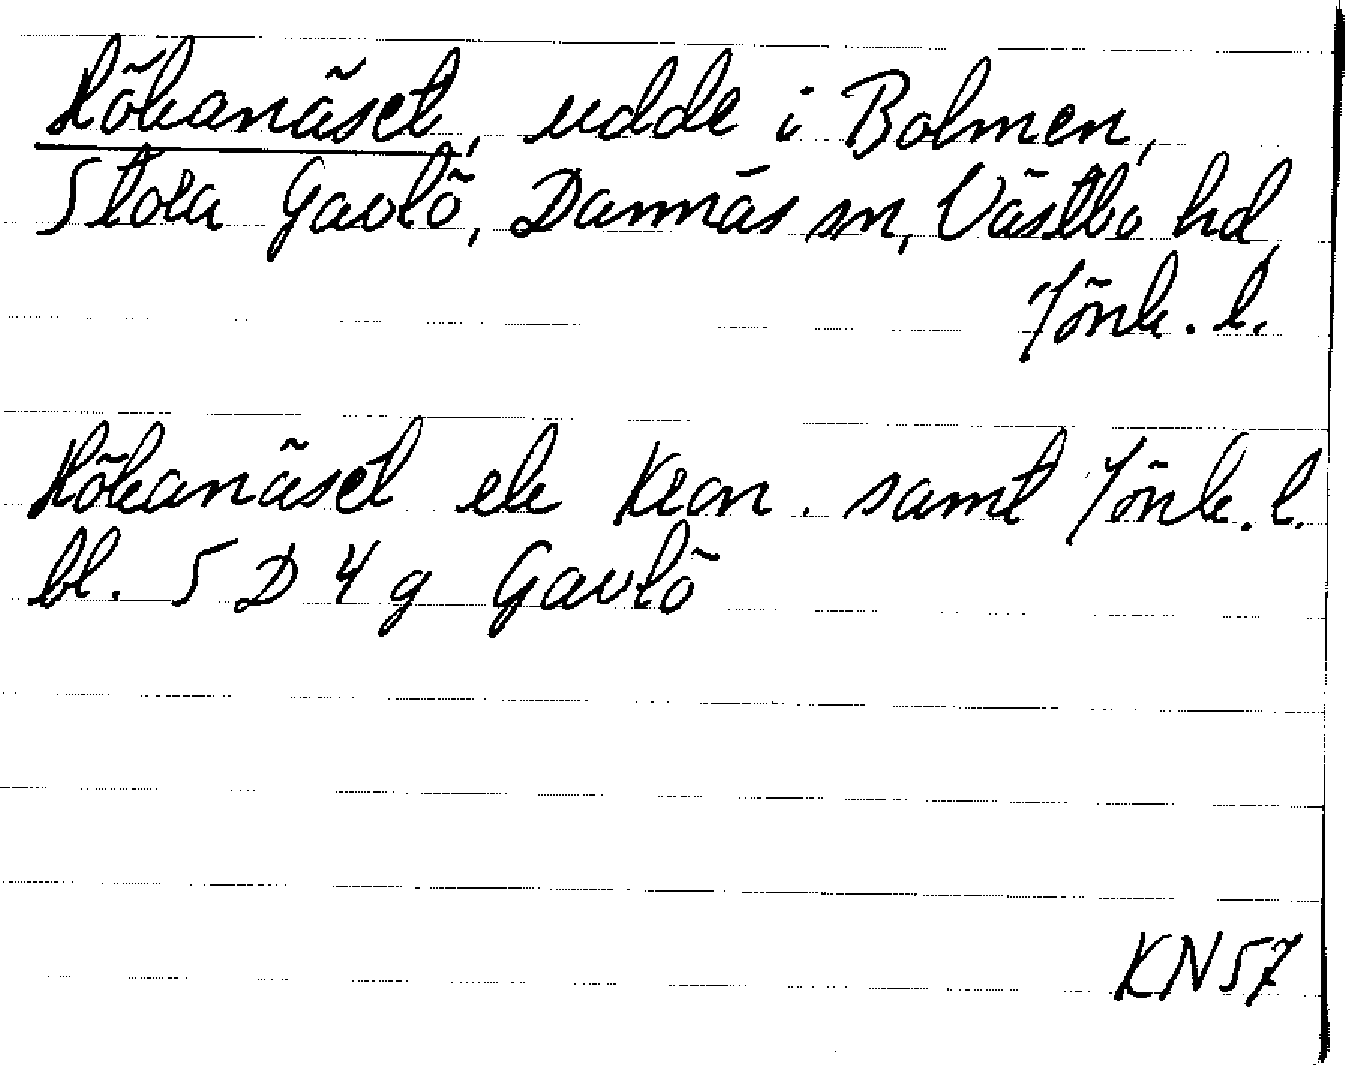 Hökanäset, udde i Bolmen,
Stora Gavlö, Dannäs sn, Västbo hd,
Jönk. l.
Hökanäset ek Kron. samt Jönk. l.
bl. 5 D 4 g Gavlö
KN 57